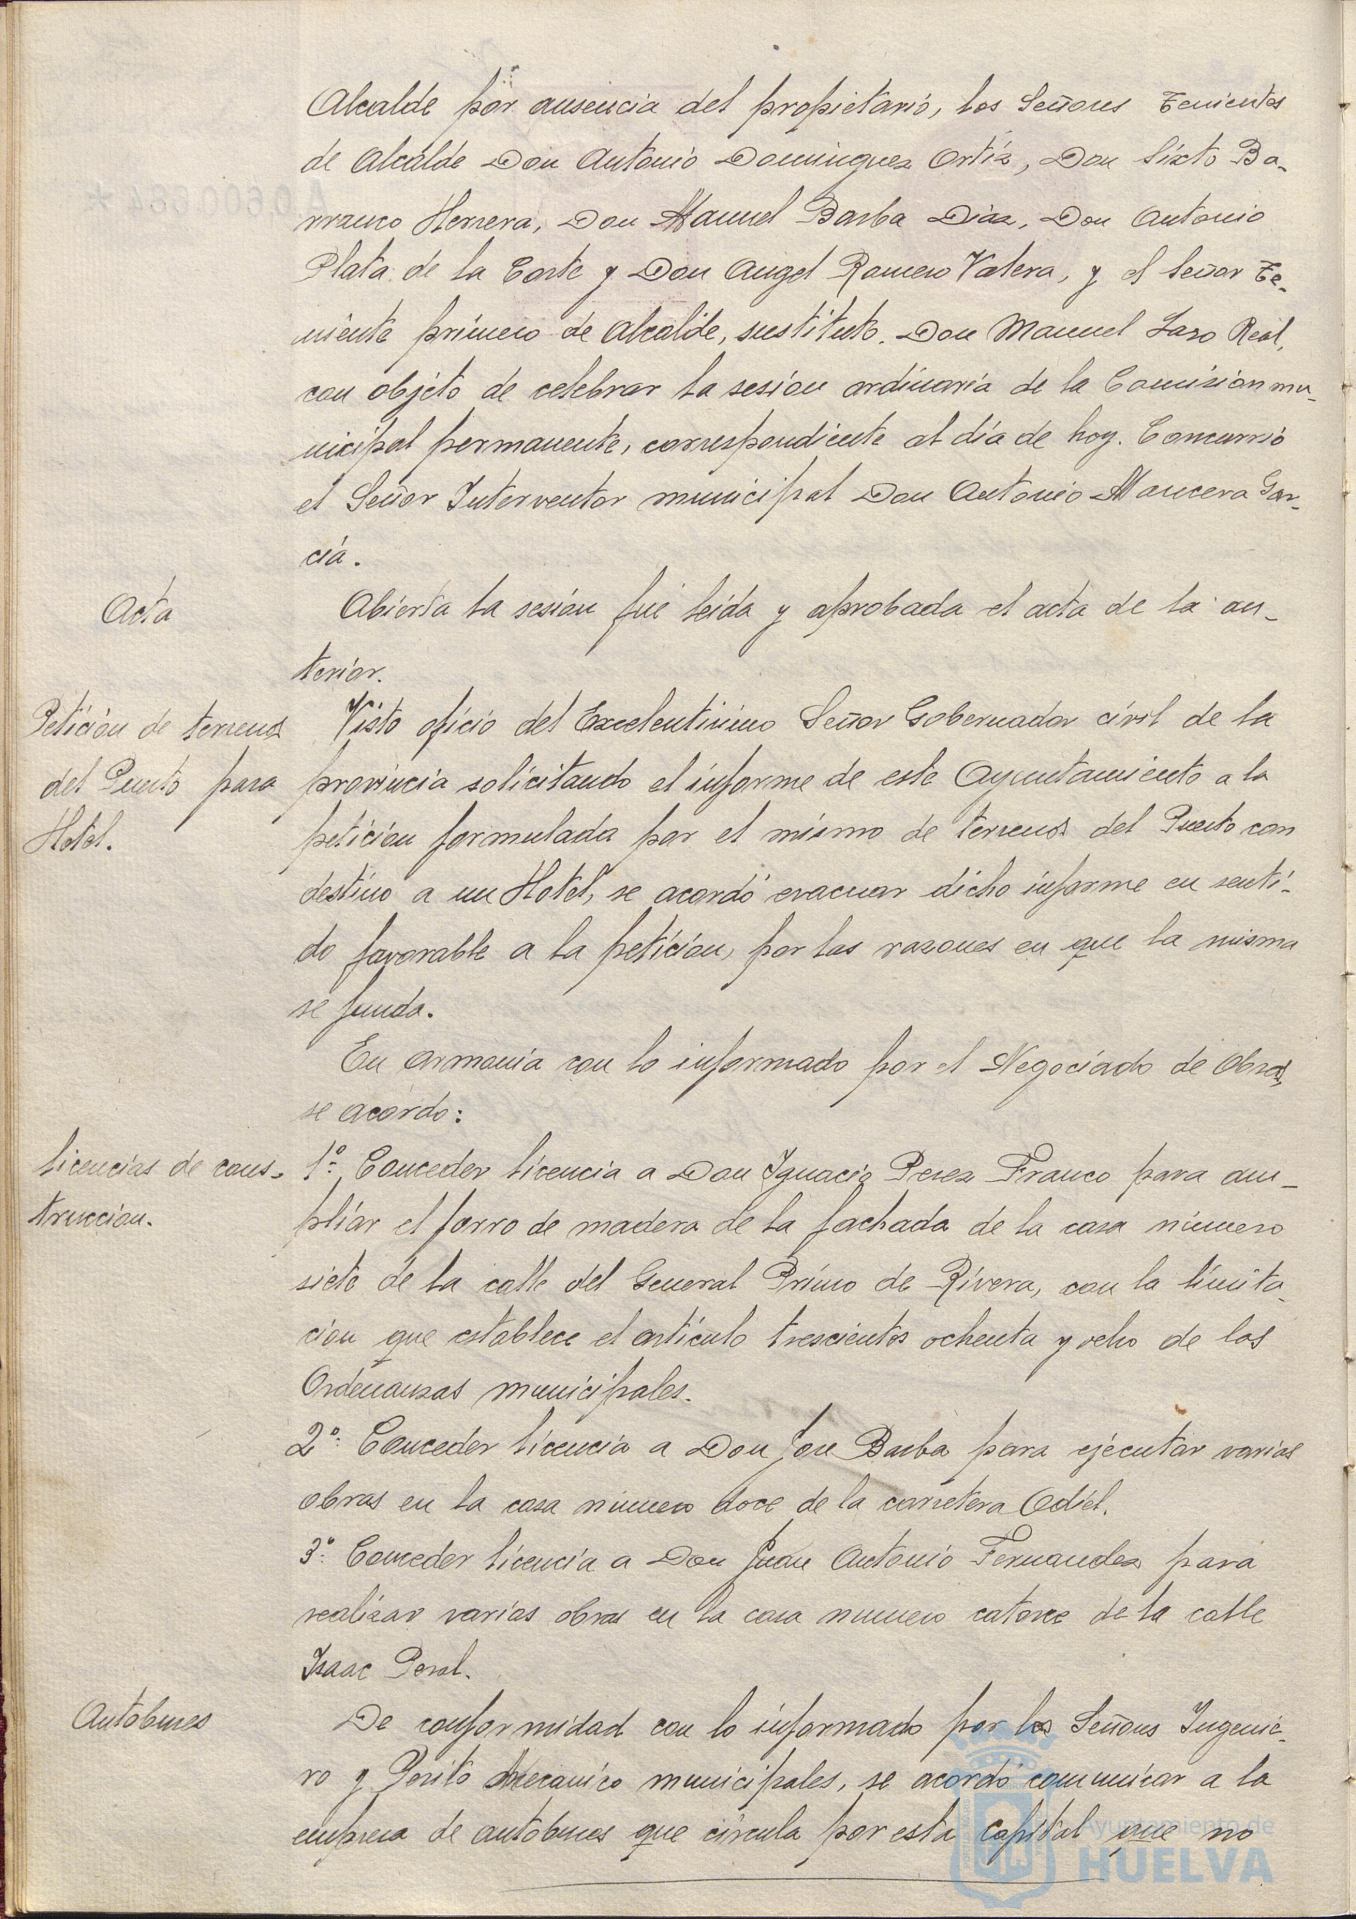 Alcalde por ausencia del propietario, los Señores Tenientes
de Alcalde Don Antonio Dominguez Ortíz, Don Sixto Ba-
rranco Herrera, Don Manuel Barba Diaz, Don Antonio
Plata de la Corte y Don Angel Romero Valera, y el Señor Te-
niente primero de Alcalde, sustituto, Don Manuel Lazo Real,
con objeto de celebrar la sesión ordinaria de la Comisión mu-
nicipal permanente, correspondiente al día de hoy. Concurrió
el Señor Interventor municipal Don Antonio Mancera Gar-
cía.
Acta
Abierta la sesión fué leída y aprobada el acta de la an-
terior.
Petición de terrenos
del Puerto para
Hotel.
Visto oficio del Excelentísimo Señor Gobernador civil de la
provincia solicitando el informe de este Ayuntamiento a la
petición formulada por el mismo de terrenos del Puerto con
destino a un Hotel, se acordó evacuar dicho informe en senti-
do favorable a la petición, por las razones en que la misma
se funda.
En armonía con lo informado por el Negociado de Obras,
se acordo:
Licencias de cons-
trucción.
1º: Conceder licencia a Don Ignacio Perez Franco para am-
pliar el forro de madera de la fachada de la casa número
siete de la calle del General Primo de Rivera, con la limita-
ción que establece el artículo trescientos ochenta y ocho de las
Ordenanzas municipales.
2º: Conceder licencia a Don Jose Barba para ejecutar varias
obras en la casa número doce de la carretera Odiel.
3º: Conceder licencia a Don Juan Antonio Fernandez para
realizar varias obras en la casa numero catorce de la calle
Isaac Peral.
Autobuses
De conformidad con lo informado por los Señores Ingenie-
ro y Perito Mecanico municipales, se acordó comunicar a la
empresa de autobuses que circula por esta Capital que no
Ayuntamiento de
HUELVA